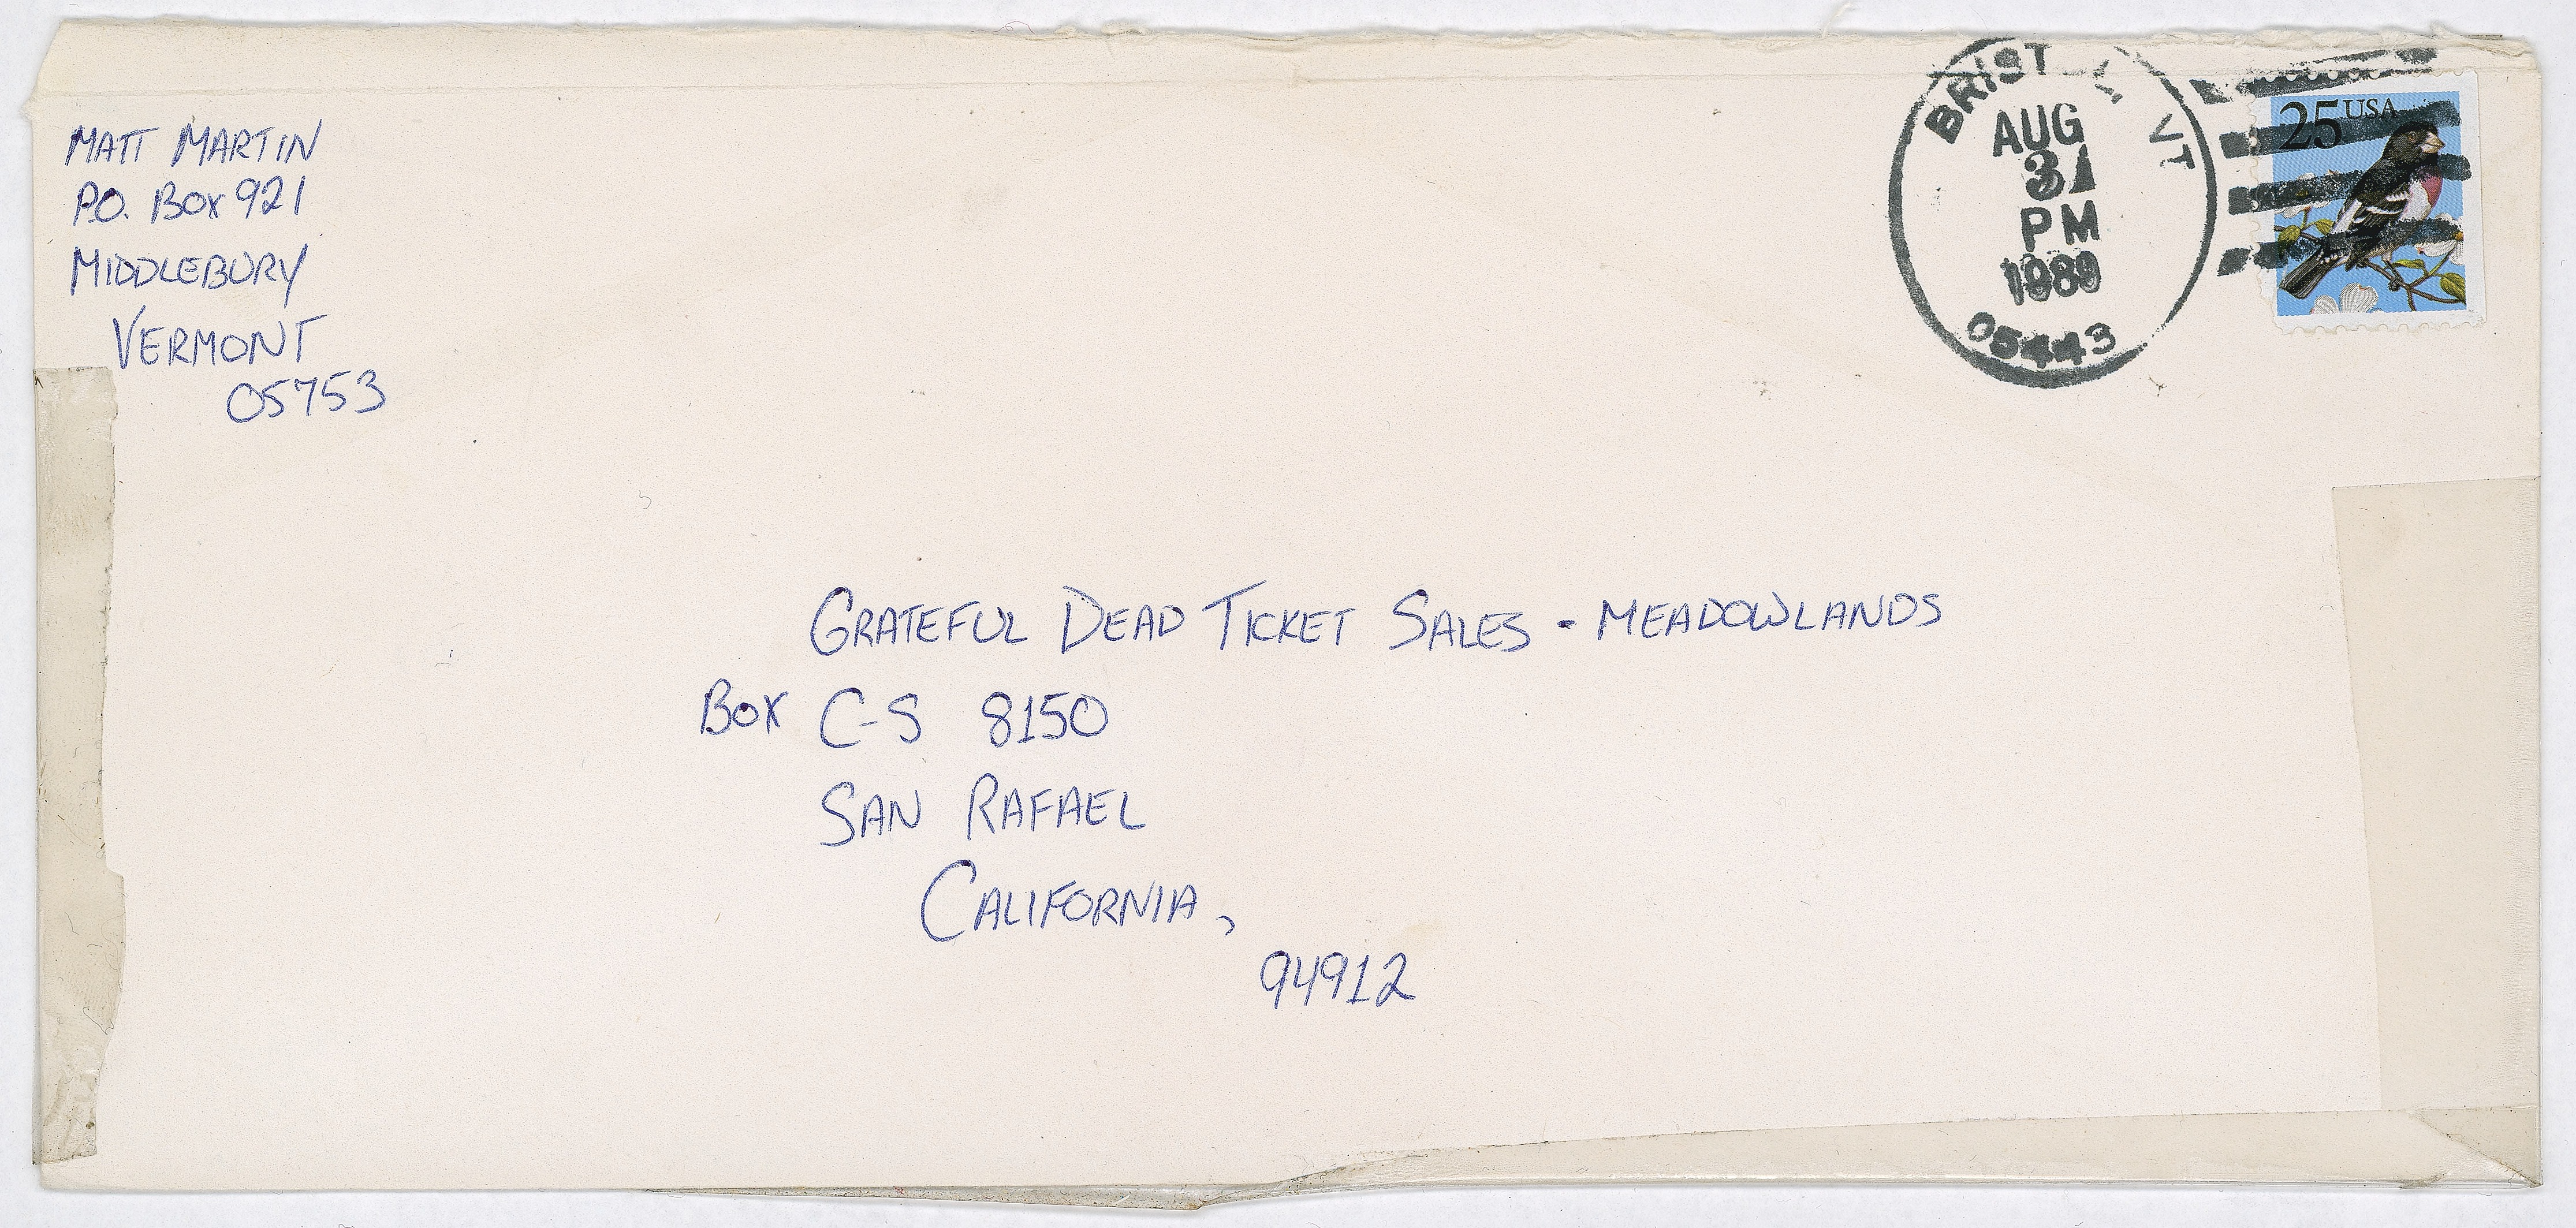 MATT MARTIN
P.O. BOX 921
MIDDLEBURY
VERMONT
05753
BRIST VT
AUG
31
PM
1989
05443
25 USA
GRATEFUL DEAD TICKET SALES - MEADOWLANDS
BOX C-S 8150
SAN RAFAEL
CALIFORNIA,
94912